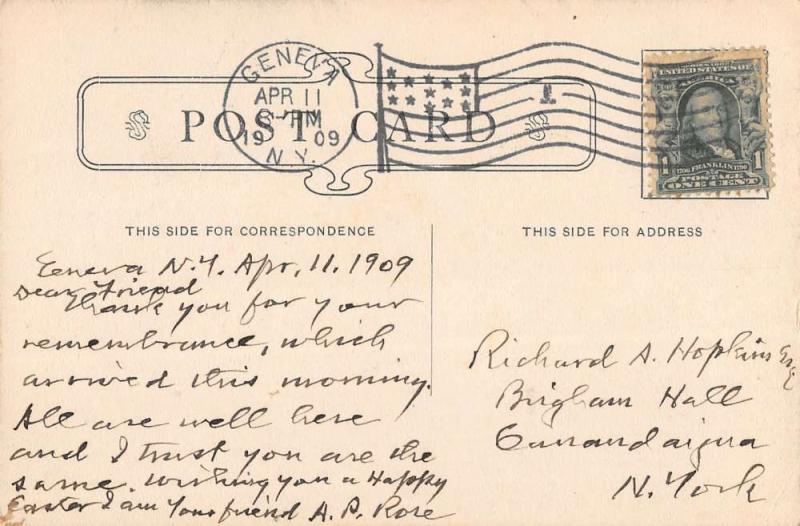 GENEVA
APR 11
-PM
19 09
N.Y.
POST CARD
UNITED STATES OF
AMERICA
1706 FRANKLIN 1790
1 POSTAGE 1
ONE CENT
THIS SIDE FOR CORRESPONDENCE
Geneva N.Y. Apr, 11. 1909
Dear Friend
Thank you for your
remembrance, which
arrived this morning.
All are well here
and I trust you are the
same. Wishing you a Happy
Easter I am Your friend A. P. Rose
THIS SIDE FOR ADDRESS
Richard A. Hopkins Esq
Brigham Hall
Canandaigua
N. York